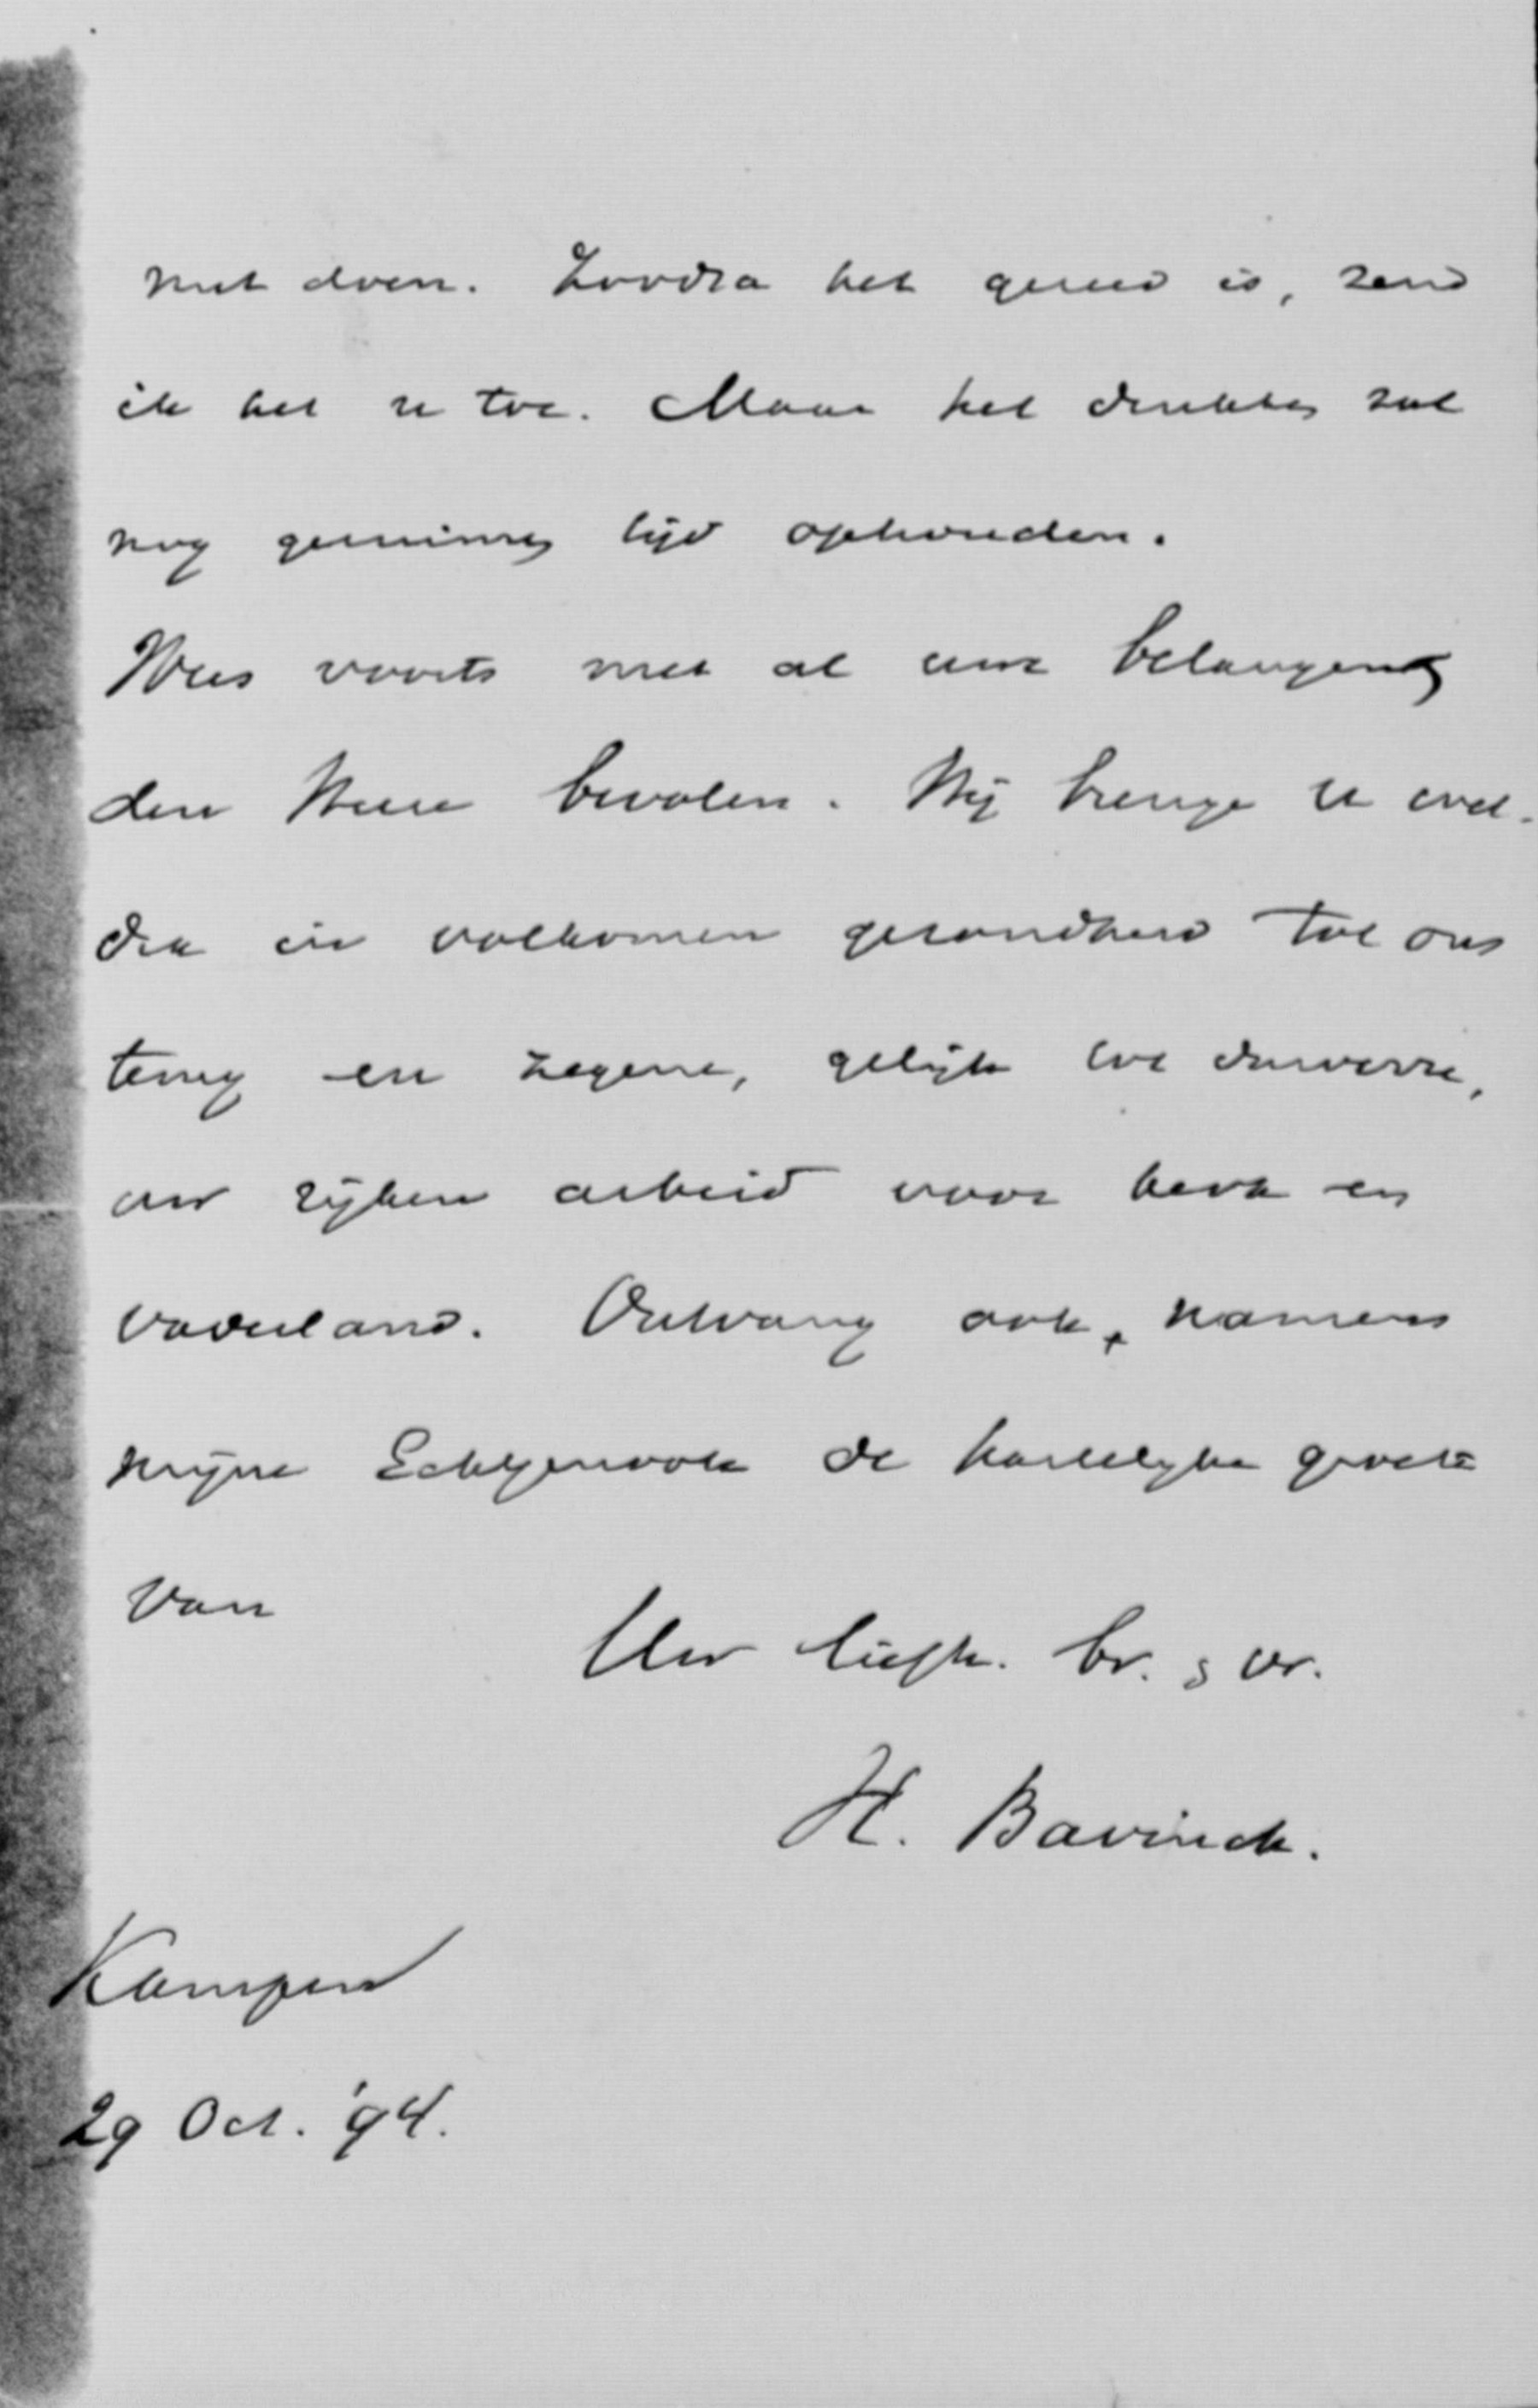 nut doen. Zoodra het gereed is, zend
ik het u toe. Maar het drukken zal
nog geruimen tijd ophouden.
Wees voorts met al uwe belangen
den Heere bevolen. Hij brenge u wel-
dra in volkomen gezondheid tot ons
terug en zegene, gelijk tot dusverre,
uw rijken arbeid voor kerk en
vaderland. Ontvang ook, namens
mijne Echtgenoote de hartelijke groete
van
Uw liefh. br. & vr.
H. Bavinck.
Kampen
29 Oct. '94.